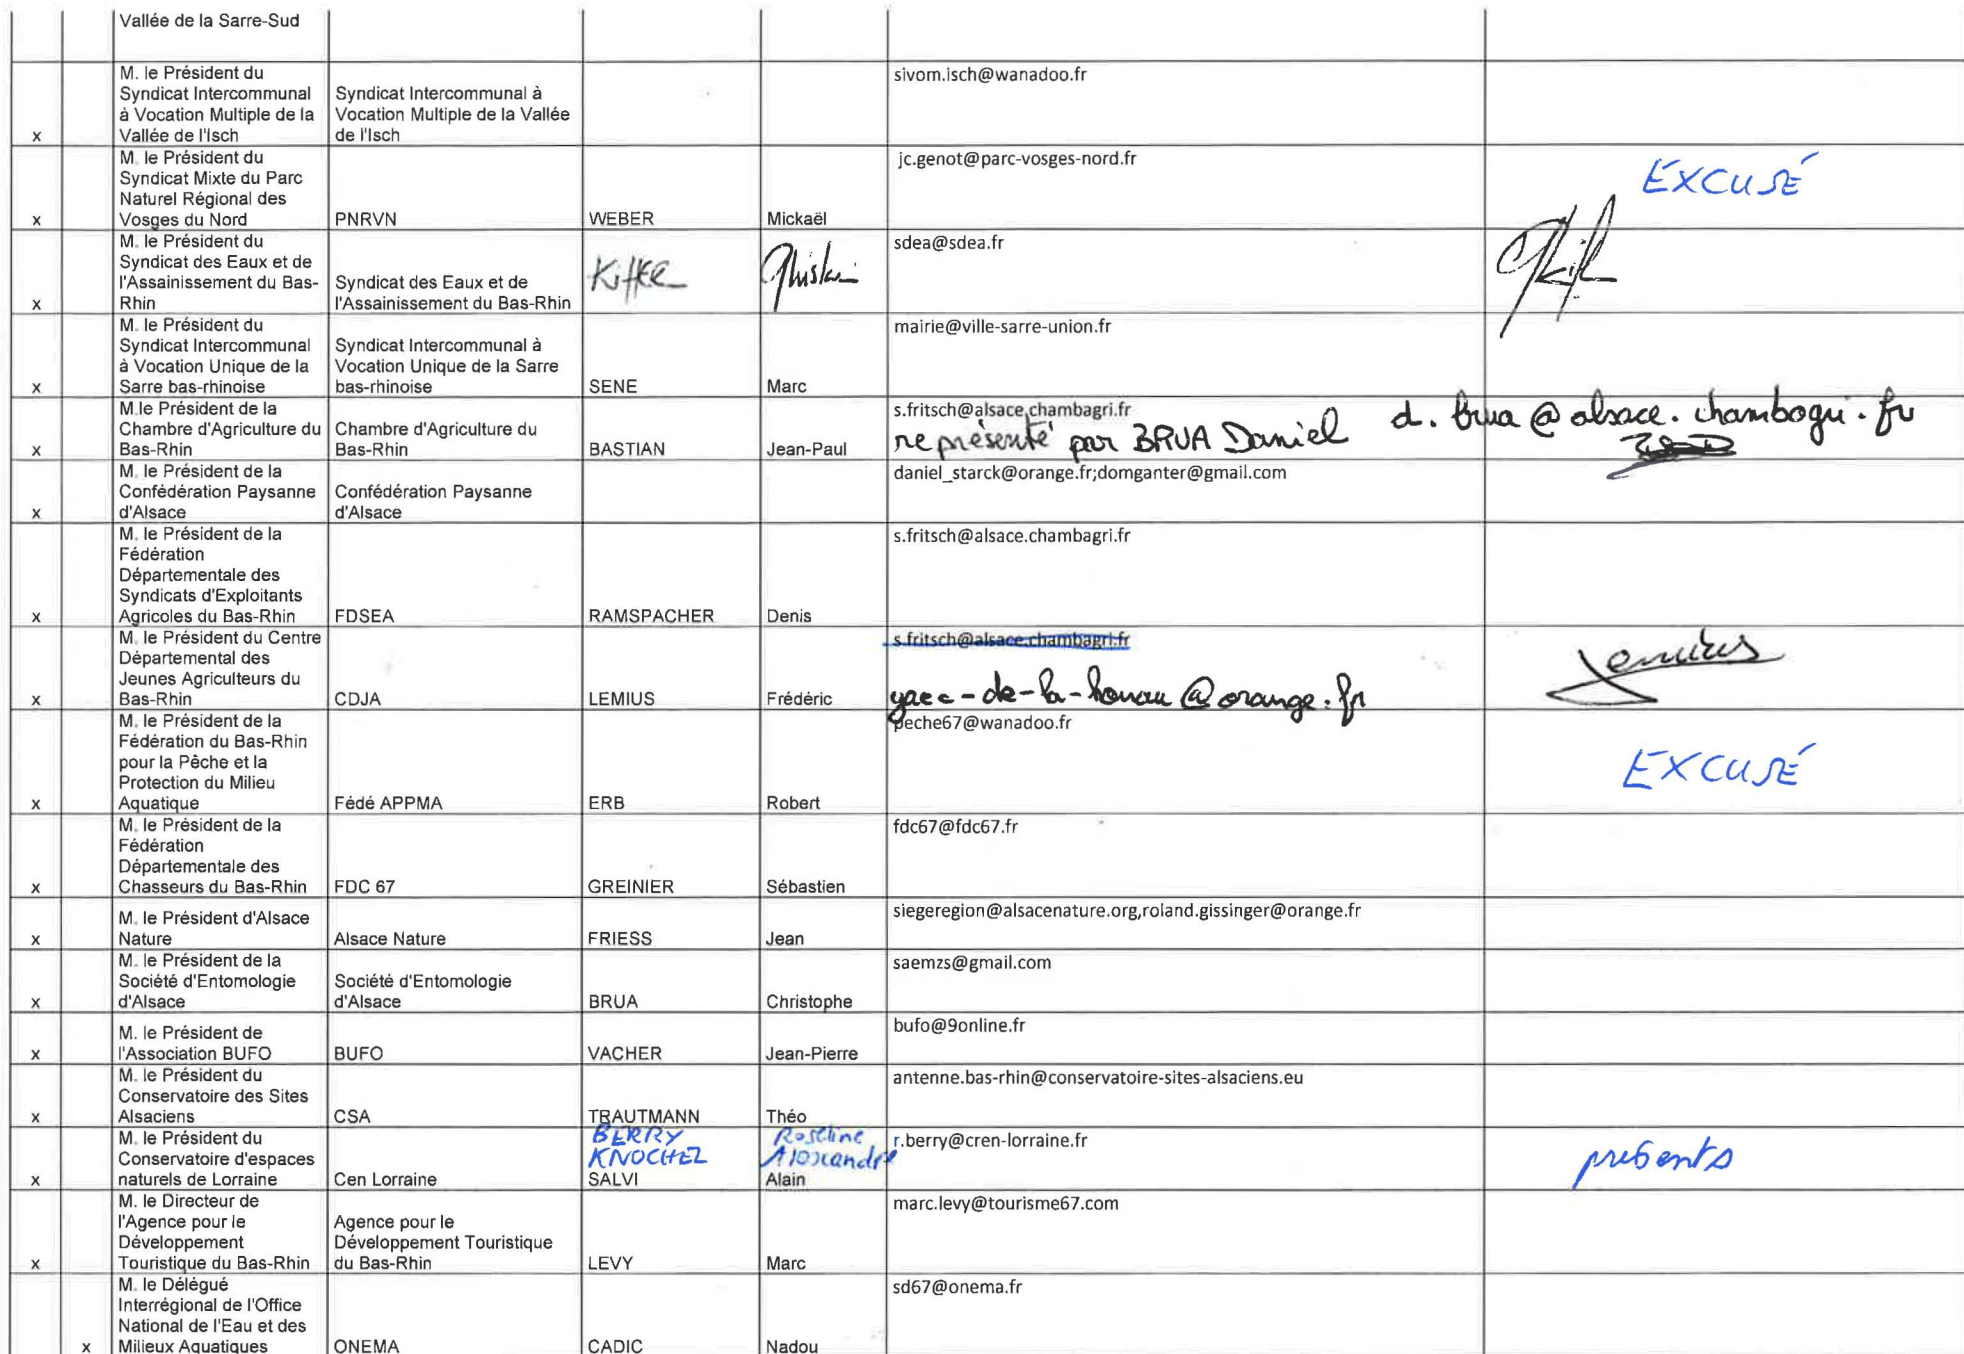 Vallée de la Sarre-Sud
M. le Président du
Syndicat Intercommunal
à Vocation Multiple de la
Vallée de l'Isch
Syndicat Intercommunal à
Vocation Multiple de la Vallée
de l'Isch
sivom.isch@wanadoo.fr
x
M. le Président du
Syndicat Mixte du Parc
Naturel Régional des
Vosges du Nord
PNRVN
WEBER
Mickaël
jc.genot@parc-vosges-nord.fr
EXCUSÉ
x
M. le Président du
Syndicat des Eaux et de
l'Assainissement du Bas-
Rhin
Syndicat des Eaux et de
l'Assainissement du Bas-Rhin
sdea@sdea.fr
x
M. le Président du
Syndicat Intercommunal
à Vocation Unique de la
Sarre bas-rhinoise
Syndicat Intercommunal à
Vocation Unique de la Sarre
bas-rhinoise
SENE
Marc
mairie@ville-sarre-union.fr
x
M.le Président de la
Chambre d'Agriculture du
Bas-Rhin
Chambre d'Agriculture du
Bas-Rhin
BASTIAN
Jean-Paul
s.fritsch@alsace.chambagri.fr
représenté par BRUA Daniel d. brua @ alsace. chambagri. fr
x
M. le Président de la
Confédération Paysanne
d'Alsace
Confédération Paysanne
d'Alsace
daniel_starck@orange.fr;domganter@gmail.com
x
M. le Président de la
Fédération
Départementale des
Syndicats d'Exploitants
Agricoles du Bas-Rhin
FDSEA
RAMSPACHER
Denis
s.fritsch@alsace.chambagri.fr
x
M. le Président du Centre
Départemental des
Jeunes Agriculteurs du
Bas-Rhin
CDJA
LEMIUS
Frédéric
s.fritsch@alsace.chambagri.fr
@ orange. fr
x
M. le Président de la
Fédération du Bas-Rhin
pour la Pêche et la
Protection du Milieu
Aquatique
Fédé APPMA
ERB
Robert
peche67@wanadoo.fr
EXCUSÉ
x
M. le Président de la
Fédération
Départementale des
Chasseurs du Bas-Rhin
FDC 67
GREINIER
Sébastien
fdc67@fdc67.fr
x
M. le Président d'Alsace
Nature
Alsace Nature
FRIESS
Jean
siegeregion@alsacenature.org,roland.gissinger@orange.fr
x
M. le Président de la
Société d'Entomologie
d'Alsace
Société d'Entomologie
d'Alsace
BRUA
Christophe
saemzs@gmail.com
x
M. le Président de
l'Association BUFO
BUFO
VACHER
Jean-Pierre
bufo@9online.fr
x
M. le Président du
Conservatoire des Sites
Alsaciens
CSA
TRAUTMANN
Théo
antenne.bas-rhin@conservatoire-sites-alsaciens.eu
x
M. le Président du
Conservatoire d'espaces
naturels de Lorraine
Cen Lorraine
BERRY
KNOCHEL
SALVI
Roseline
Alexandre
Alain
r.berry@cren-lorraine.fr
présents
x
M. le Directeur de
l'Agence pour le
Développement
Touristique du Bas-Rhin
Agence pour le
Développement Touristique
du Bas-Rhin
LEVY
Marc
marc.levy@tourisme67.com
x
M. le Délégué
Interrégional de l'Office
National de l'Eau et des
Milieux Aquatiques
ONEMA
CADIC
Nadou
sd67@onema.fr
x